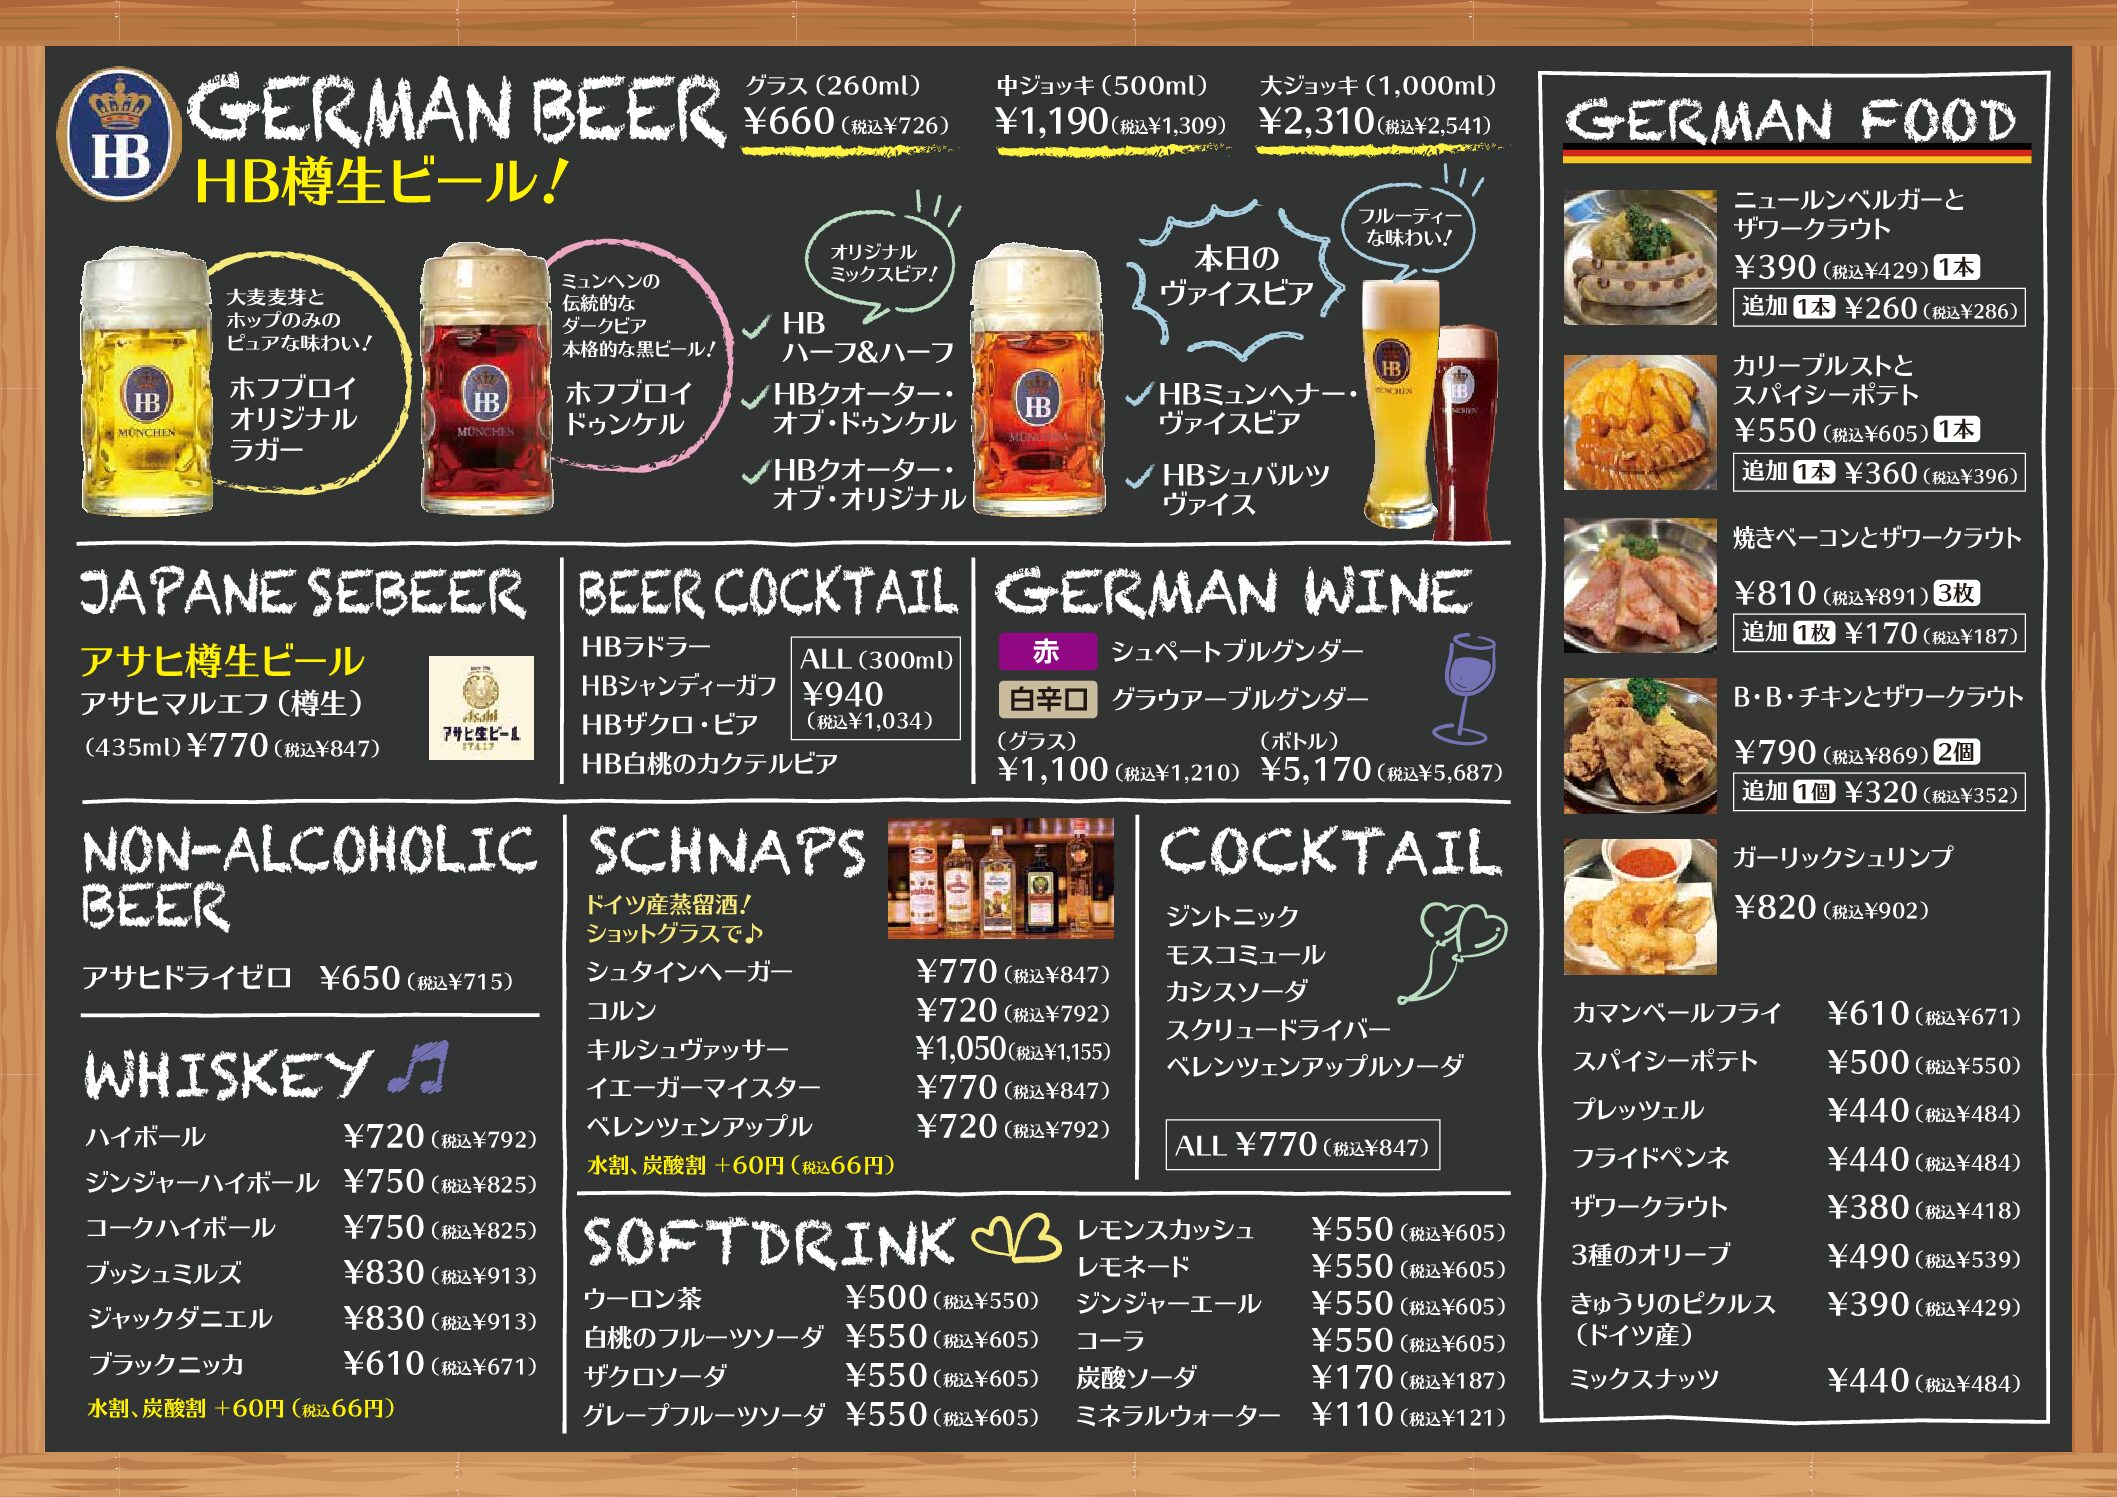 HB
GERMAN BEER
HB樽生ビール！
グラス（260ml）
¥660（税込¥726）
中ジョッキ（500ml）
¥1,190（税込¥1,309）
大ジョッキ（1,000ml）
¥2,310（税込¥2,541）
HB
MÜNCHEN
大麦麦芽と
ホップのみの
ピュアな味わい！
ホフブロイ
オリジナル
ラガー
HB
MÜNCHEN
ミュンヘンの
伝統的な
ダークビア
本格的な黒ビール！
ホフブロイ
ドゥンケル
オリジナル
ミックスビア！
HB
ハーフ&ハーフ
HBクオーター・
オブ・ドゥンケル
HBクオーター・
オブ・オリジナル
HB
MÜNCHEN
本日の
ヴァイスビア
フルーティー
な味わい！
HBミュンヘナー・
ヴァイスビア
HBシュバルツ
ヴァイス
HB
MÜNCHEN
HB
JAPANESEBEER
アサヒ樽生ビール
アサヒマルエフ（樽生）
（435ml）¥770（税込¥847）
Asahi
アサヒ生ビール
BEER COCKTAIL
HBラドラー
HBシャンディーガフ
HBザクロ・ビア
HB白桃のカクテルビア
ALL（300ml）
¥940
（税込¥1,034）
GERMAN WINE
赤 シュペートブルグンダー
白辛口 グラウアーブルグンダー
（グラス）
¥1,100（税込¥1,210）
（ボトル）
¥5,170（税込¥5,687）
NON-ALCOHOLIC
BEER
アサヒドライゼロ ¥650（税込¥715）
WHISKEY
ハイボール ¥720（税込¥792）
ジンジャーハイボール ¥750（税込¥825）
コークハイボール ¥750（税込¥825）
ブッシュミルズ ¥830（税込¥913）
ジャックダニエル ¥830（税込¥913）
ブラックニッカ ¥610（税込¥671）
水割、炭酸割 ＋60円（税込66円）
SCHNAPS
ドイツ産蒸留酒！
ショットグラスで♪
シュタインヘーガー ¥770（税込¥847）
コルン ¥720（税込¥792）
キルシュヴァッサー ¥1,050（税込¥1,155）
イエーガーマイスター ¥770（税込¥847）
ベレンツェンアップル ¥720（税込¥792）
水割、炭酸割 ＋60円（税込66円）
COCKTAIL
ジントニック
モスコミュール
カシスソーダ
スクリュードライバー
ベレンツェンアップルソーダ
ALL ¥770（税込¥847）
SOFTDRINK
ウーロン茶 ¥500（税込¥550）
白桃のフルーツソーダ ¥550（税込¥605）
ザクロソーダ ¥550（税込¥605）
グレープフルーツソーダ ¥550（税込¥605）
レモンスカッシュ ¥550（税込¥605）
レモネード ¥550（税込¥605）
ジンジャーエール ¥550（税込¥605）
コーラ ¥550（税込¥605）
炭酸ソーダ ¥170（税込¥187）
ミネラルウォーター ¥110（税込¥121）
GERMAN FOOD
ニュールンベルガーと
ザワークラウト
¥390（税込¥429）1本
追加 1本 ¥260（税込¥286）
カリーブルストと
スパイシーポテト
¥550（税込¥605）1本
追加 1本 ¥360（税込¥396）
焼きベーコンとザワークラウト
¥810（税込¥891）3枚
追加 1枚 ¥170（税込¥187）
B・B・チキンとザワークラウト
¥790（税込¥869）2個
追加 1個 ¥320（税込¥352）
ガーリックシュリンプ
¥820（税込¥902）
カマンベールフライ ¥610（税込¥671）
スパイシーポテト ¥500（税込¥550）
プレッツェル ¥440（税込¥484）
フライドペンネ ¥440（税込¥484）
ザワークラウト ¥380（税込¥418）
3種のオリーブ ¥490（税込¥539）
きゅうりのピクルス ¥390（税込¥429）
（ドイツ産）
ミックスナッツ ¥440（税込¥484）